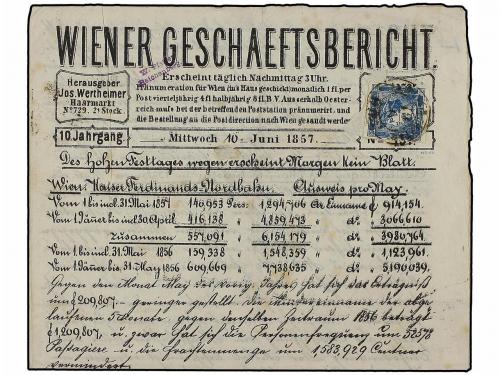 WIENER GESCHAEFTSBERICHT.
Herausgeber
Jos. Wertheimer
Haarmarkt
No 729. 2t Stock.
10. Jahrgang
Erscheint täglich Nachmittag 3 Uhr.
Pränumeration für Wien (ins Haus geschickt) monatlich 1 fl. per
Post vierteljährig 4 fl halbjährig 8 fl. B.V. Ausserhalb Oester-
reich muss bei der betreffenden Poststation pränumerirt, und
die Bestellung an die Postdirection nach Wien gesandt werde
Mittwoch 10 Juni 1857.
Des hohen Festtages wegen erscheint Morgen Kein Blatt.
Wien. Kaiser Ferdinands Nordbahn. Ausweis pro May.
Vom 1 bis incl. 31 Mai 1857 140,953 Pers: 1,294,706 Ctr Einname f 914,154.
Vom 1 Jäner bis incl 30 April. 416,138 " 4,859,473 " dt 3066610
Zusammen 557,091 " 6,154,179 " dt 3980,764
Vom 1 bis incl. 31. Mai 1856 159,338 " 1,548,359 " dt 1,123,961.
Vom 1 Jäner bis 31. May 1856 609,669 " 7738635 " dt 5,190,039.
Gegen den Monat May des vorig. Jahres hat sich das Erträgniß
um f 209,807.- geringer gestellt. Die Mindereinname der abge-
laufenen 5 Monate, gegen denselben Zeitraum 1856 beträgt
f 1,209,807, u. zwar hat sich die Personenfrequenz um 52578
Passagiere u. die Frachtenmenge um 1,583,929 Centner
vermindert